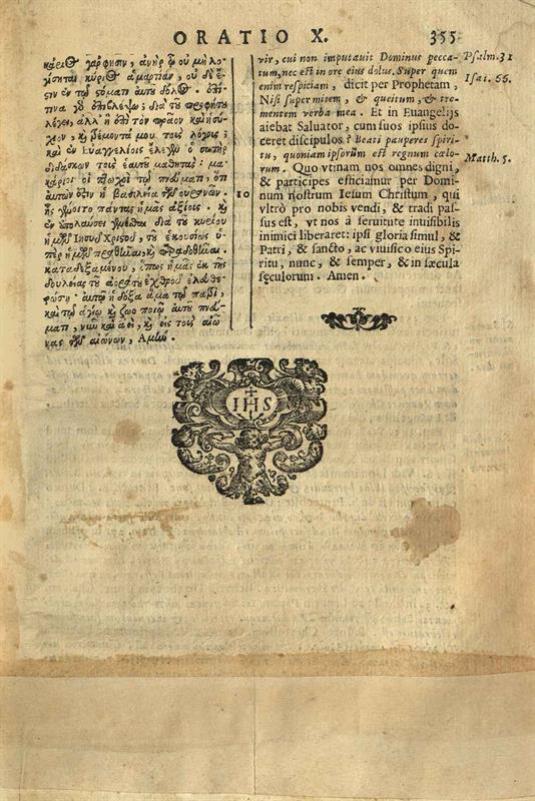 ORATIO X. 355
κάριος γάρ φησιν, ἀνὴρ ᾧ οὐ μὴ λο
γίσηται κύριος ἁμαρτίαν, οὐδέ ἐ-
στιν ἐν τῷ στόματι αὐτοῦ δόλος. ἐπὶ
τίνα γὸ ἐπιβλέψω; διὰ τοῦ προφήτου
λέγει, ἀλλ' ἢ ἐπὶ τὸν πρᾶον καὶ ἡσύ
χιον, καὶ τρέμοντά μου τοὺς λόγους;
καὶ ἐν Εὐαγγελίοις ἔλεγεν ὁ σωτὴρ
διδάσκων τοὺς ἑαυτοῦ μαθητάς· μα-
κάριοι οἱ πτωχοὶ τῷ πνεύματι, ὅτι
αὐτῶν ἐστιν ἡ βασιλεία τῶν οὐρανῶν.
γένοιτο πάντας ἡμᾶς ἀξίους. καὶ
διὰ τοῦ κυρίου
ἡμῶν Ἰησοῦ Χριστοῦ, τοῦ ἑκουσίως ὑ-
πὲρ ἡμῶν
καταδεξαμένου, ὅπως ἡμᾶς ἐκ τῆς
δουλείας τοῦ ἀοράτου ἐχθροῦ ἐλευθε-
ρώσῃ· αὐτῷ ἡ δόξα ἅμα τῷ πατρὶ,
καὶ τῷ ἁγίῳ καὶ ζωοποιῷ αὐτοῦ πνεύ-
ματι, νῦν καὶ ἀεὶ, καὶ εἰς τοὺς αἰῶ-
νας τῶν αἰώνων, Ἀμήν.
10
vir, cui non imputauit Dominus pecca-
tum, nec est in ore eius dolus. Super quem
enim respiciam, dicit per Prophetam,
Nisi super mitem, & quietum, & tre-
mentem verba mea. Et in Euangelijs
aiebat Saluator, cum suos ipsius do-
ceret discipulos? Beati pauperes spiri-
tu, quoniam ipsorum est regnum cælo-
rum. Quo vtinam nos omnes digni,
& participes efficiamur per Domi-
num nostrum Iesum Christum, qui
vltrò pro nobis vendi, & tradi pas-
sus est, vt nos à seruitute inuisibilis
inimici liberaret: ipsi gloria simul, &
Patri, & sancto, ac viuifico eius Spi-
ritu, nunc, & semper, & in sæcula
sęculorum. Amen.
Psalm. 31
Isai. 66.
Matth. 5.
IHS